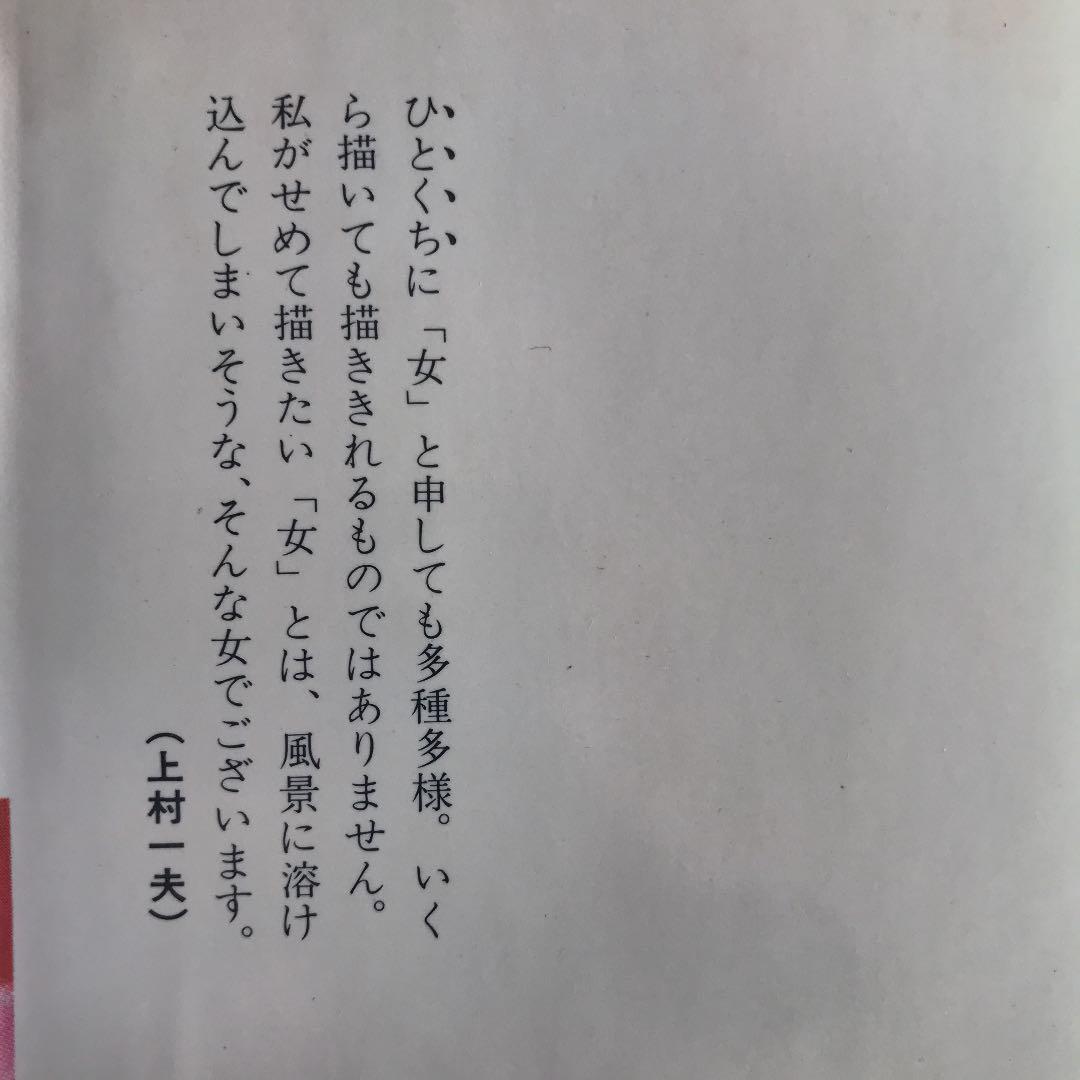 ひとくちに「女」と申しても多種多様。いく
ら描いても描ききれるものではありません。
私がせめて描きたい「女」とは、風景に溶け
込んでしまいそうな、そんな女でございます。
（上村一夫）